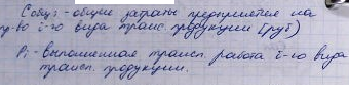 Собщi - общие затраты предприятия на
пр-во i-го вида трансп. продукции (руб)
Pi - выполненная трансп. работа i-го вида
трансп. продукции.